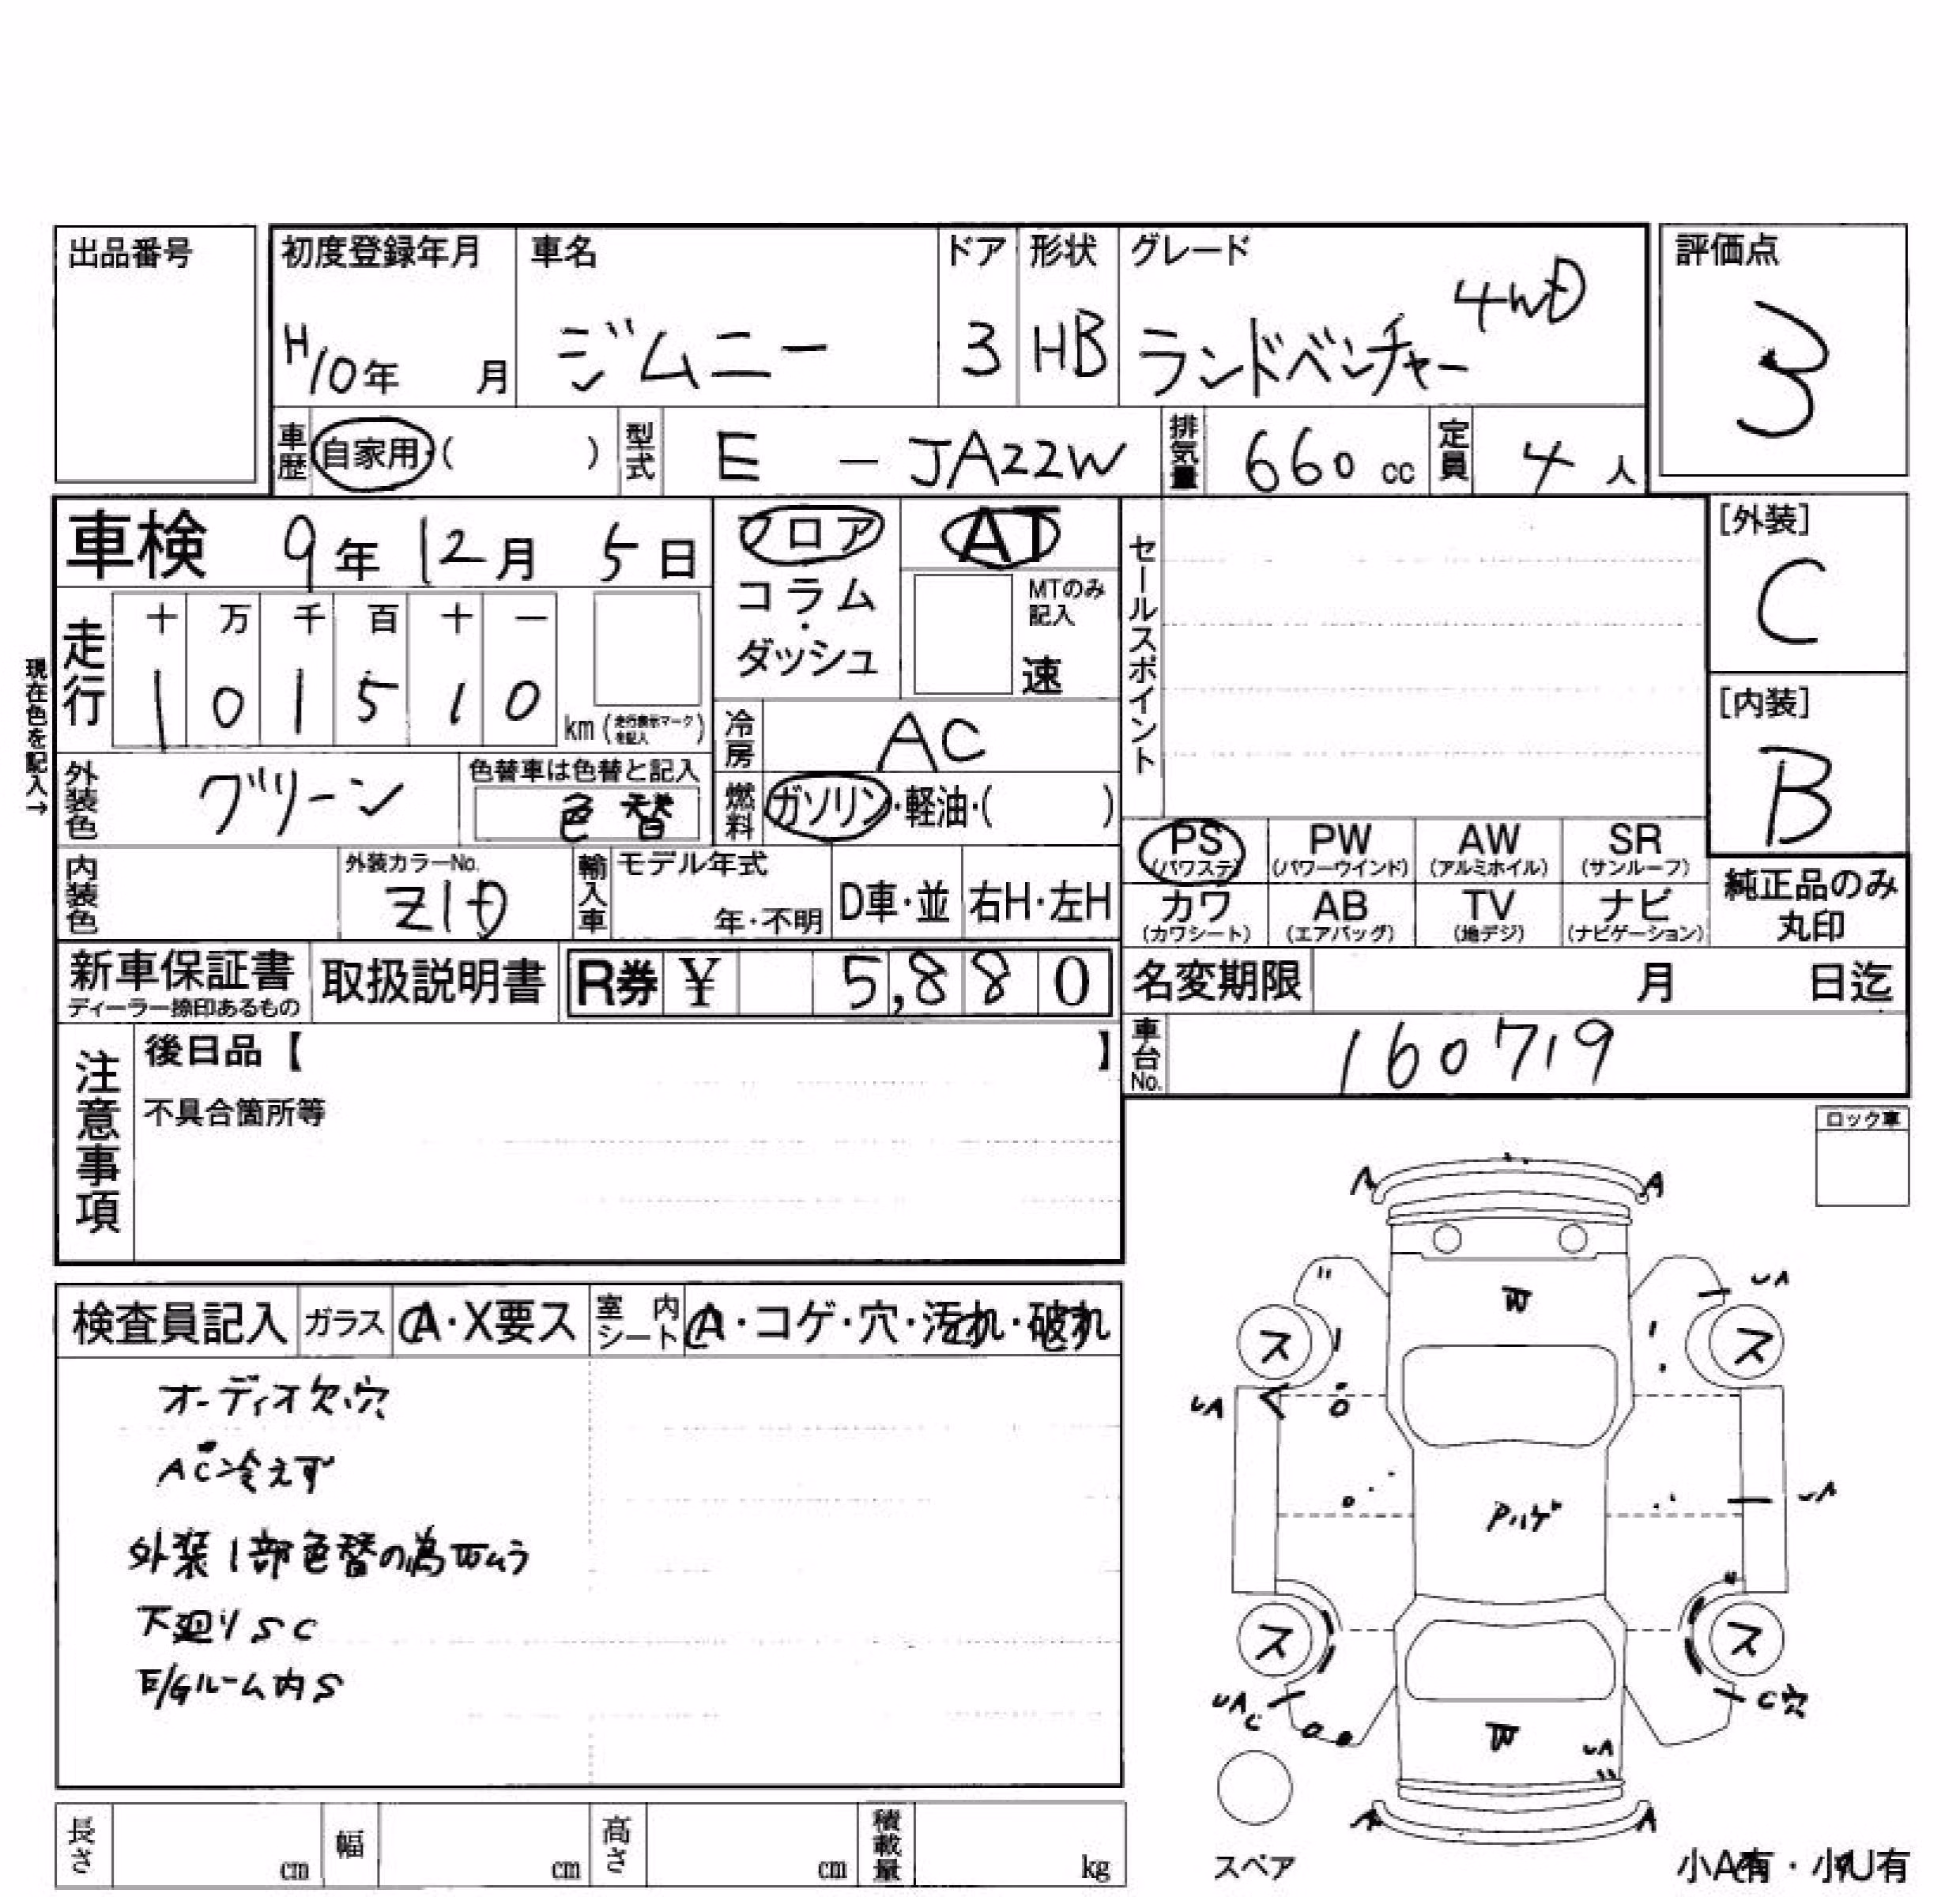 出品番号
初度登録年月 車名 ドア 形状 グレード 評価点
H10年 月 ジムニー 3 HB ランドベンチャー 4WD 3
車歴 自家用・( ) 型式 E - JA22W 排気量 660cc 定員 4人
車検 9年 12月 5日 フロア AT
コラム・ダッシュ MTのみ記入 速
セールスポイント
[外装]
C
[内装]
B
現在色を記入→
走行 十 万 千 百 十 一
1 0 1 5 1 0 km (走行表示マークを記入)
冷房 AC
外装色 グリーン 色替車は色替と記入 色替 燃料 ガソリン・軽油・( )
PS (パワステ) PW (パワーウインド) AW (アルミホイル) SR (サンルーフ)
カワ (カワシート) AB (エアバッグ) TV (地デジ) ナビ (ナビゲーション)
純正品のみ丸印
内装色 外装カラーNo. 輸入車 モデル年式 年・不明 D車・並 右H・左H
新車保証書 ディーラー捺印あるもの 取扱説明書 R券 ¥ 5,880 名変期限 月 日迄
車台No. 160719
注意事項 後日品【 】
不具合箇所等
ロック車
検査員記入 ガラス A・X要ス 室内シート A・コゲ・穴・汚れ・破れ
オーディオ欠穴
AC冷えず
外装1部色替の為Wムラ
下廻りSC
E/Gルーム内S
A A
W
UA
ス ス
UA
UA
Pハゲ
ス ス
UA C
C穴
W
UA
A A
スペア
小A有・小U有
長さ cm 幅 cm 高さ cm 積載量 kg